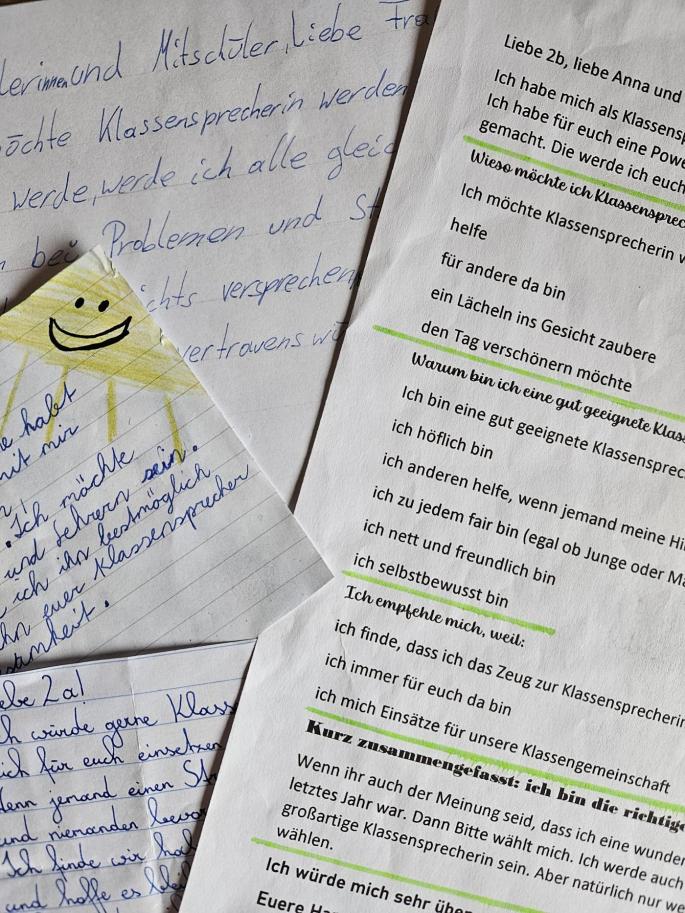 lerinnen und Mitschüler, liebe Fra
möchte Klassensprecherin werden
werde, werde ich alle gleic
bei Problemen und St
ichts versprechen
vertrauens wü
e habt
mit mir
Ich möchte
und Lehrern sein.
ich ihn bestmöglich
ihn euer Klassensprecher
ebe 2a!
ch würde gerne Klass
ich für euch einsetzen
Wenn jemand einen St
und niemanden bevor
Ich finde wir hab
und hoffe es blei
Liebe 2b, liebe Anna und
Ich habe mich als Klassensp
Ich habe für euch eine Powe
gemacht. Die werde ich euch
Wieso möchte ich Klassensprec
Ich möchte Klassensprecherin w
helfe
für andere da bin
ein Lächeln ins Gesicht zaubere
den Tag verschönern möchte
Warum bin ich eine gut geeignete Klass
Ich bin eine gut geeignete Klassensprec
ich höflich bin
ich anderen helfe, wenn jemand meine Hi
ich zu jedem fair bin (egal ob Junge oder Mä
ich nett und freundlich bin
ich selbstbewusst bin
Ich empfehle mich, weil:
ich finde, dass ich das Zeug zur Klassensprecherin
ich immer für euch da bin
ich mich Einsätze für unsere Klassengemeinschaft
Kurz zusammengefasst: ich bin die richtige
Wenn ihr auch der Meinung seid, dass ich eine wunder
letztes Jahr war. Dann Bitte wählt mich. Ich werde auch
großartige Klassensprecherin sein. Aber natürlich nur we
wählen.
Ich würde mich sehr über
Euere Ha